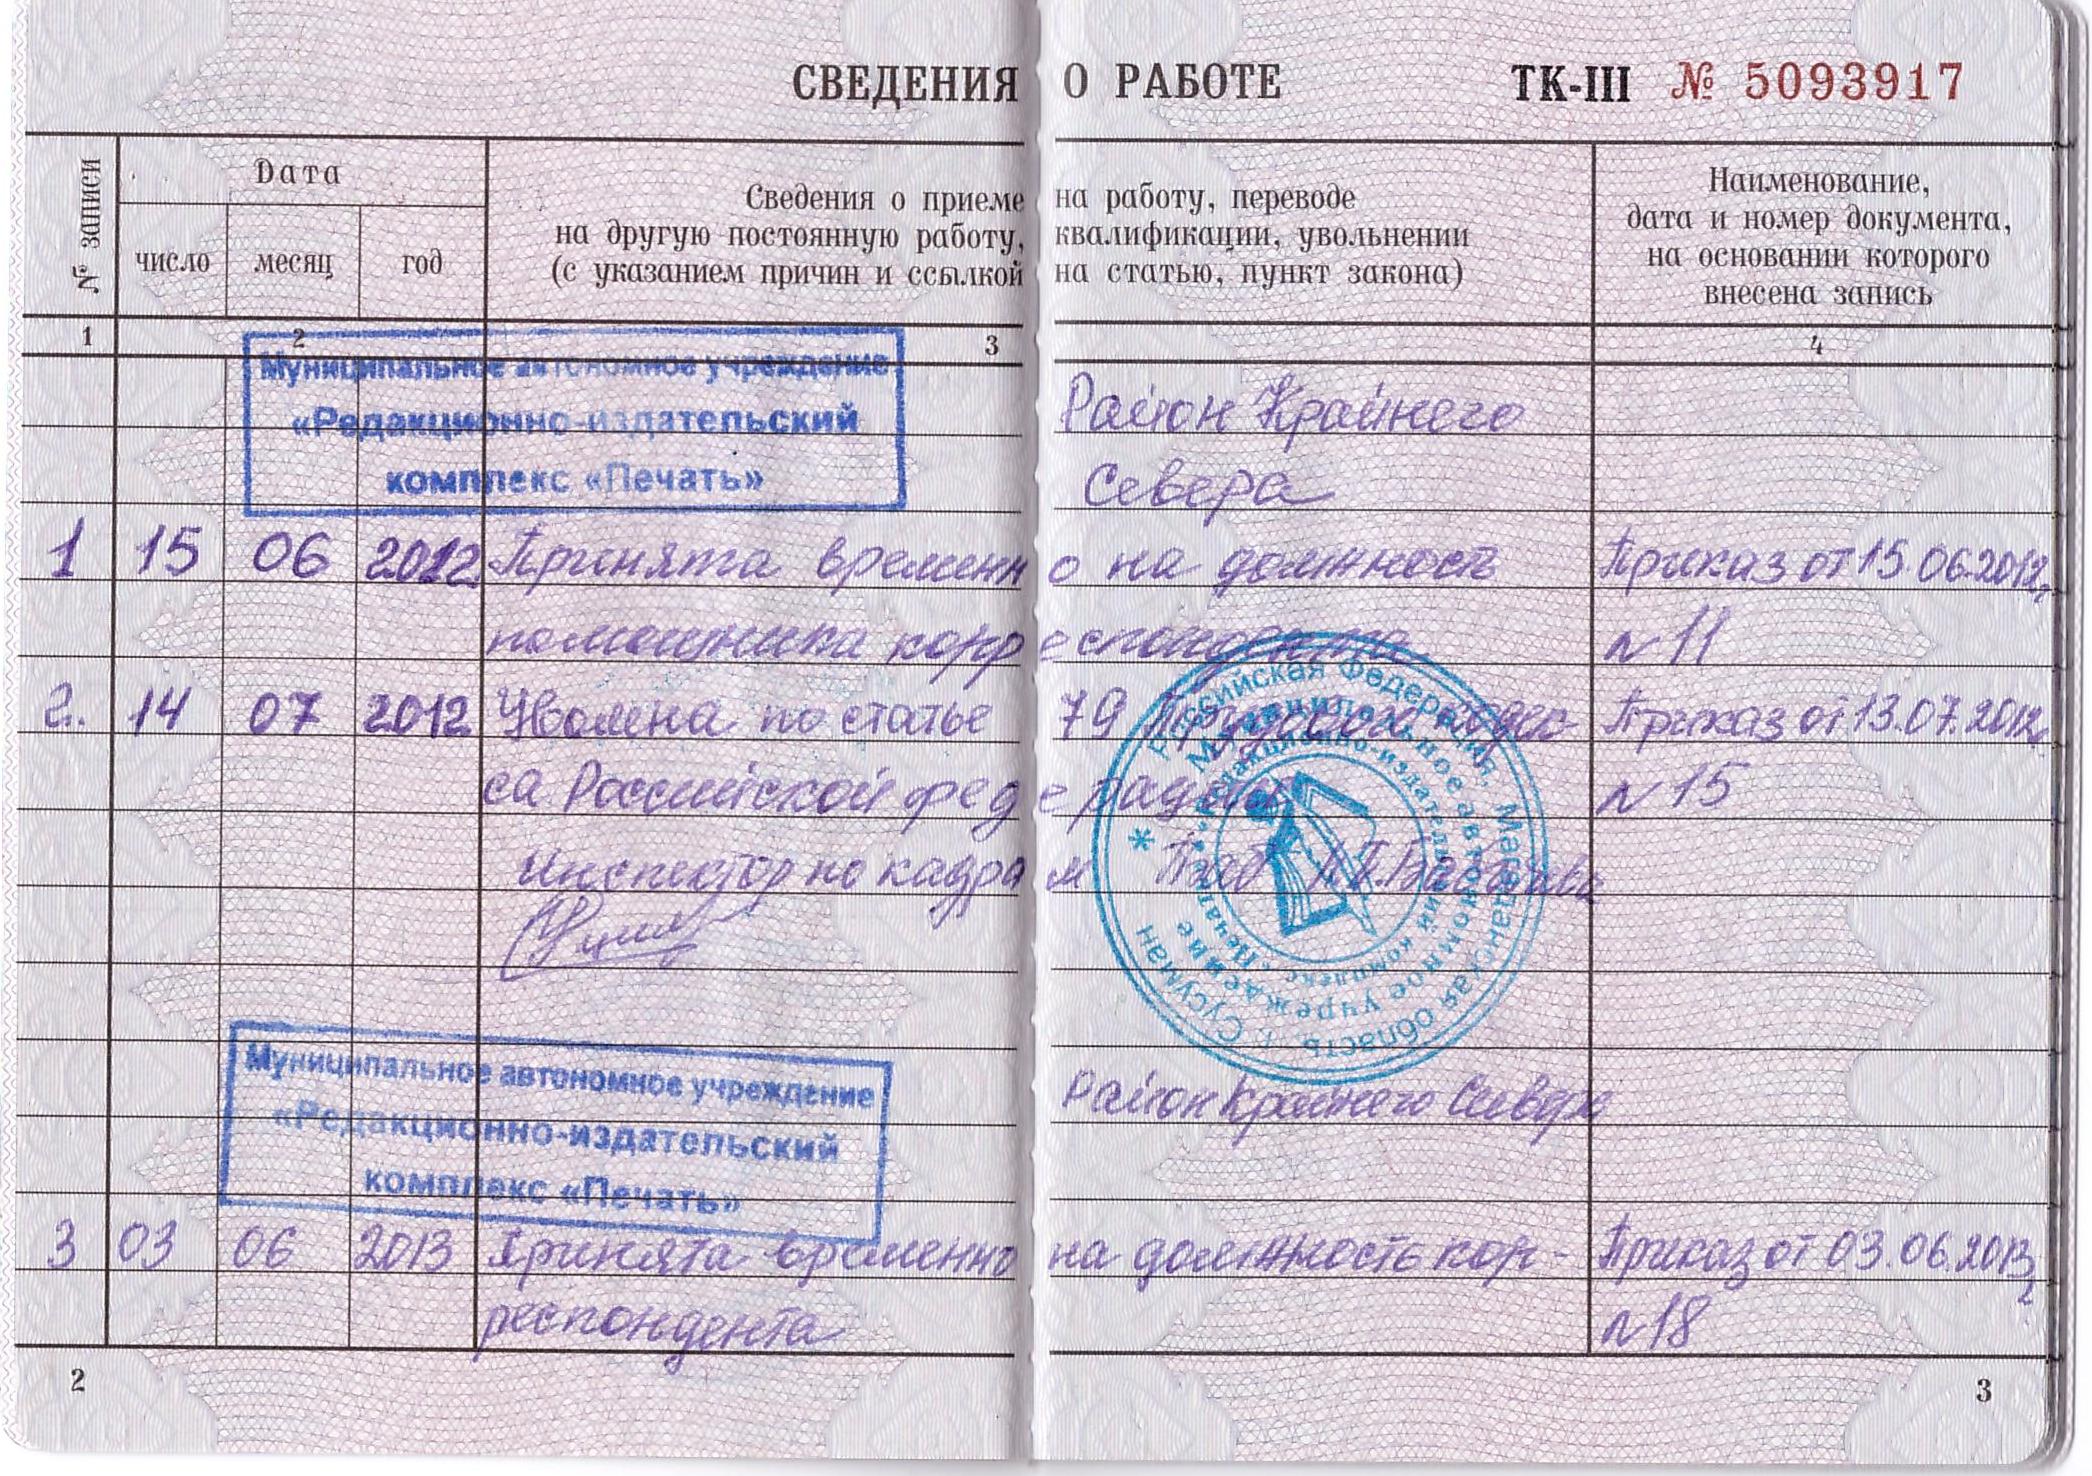 СВЕДЕНИЯ О РАБОТЕ ТК-III № 5093917
№ записи
Дата
число месяц год
Сведения о приеме на работу, переводе
на другую постоянную работу, квалификации, увольнении
(с указанием причин и ссылкой на статью, пункт закона)
Наименование,
дата и номер документа,
на основании которого
внесена запись
1 2 3 4
Муниципальное автономное учреждение
«Редакционно-издательский
комплекс «Печать»
Район Крайнего
Севера
1 15 06 2012 Принята временно на должность Приказ от 15.06.2012,
помощника корреспондента №11
2. 14 07 2012 Уволена по статье 79 Трудового кодек Приказ от 13.07.2012,
са Российской федерации №15
Инспектор по кадрам
Российская Федерация, Магаданская область, г. Сусуман
Муниципальное автономное учреждение
«Редакционно-издательский комплекс «Печать»
Муниципальное автономное учреждение
«Редакционно-издательский
комплекс «Печать»
Район Крайнего Севера
3 03 06 2013 Принята временно на должность кор- Приказ от 03.06.2013,
респондента №18
2 3